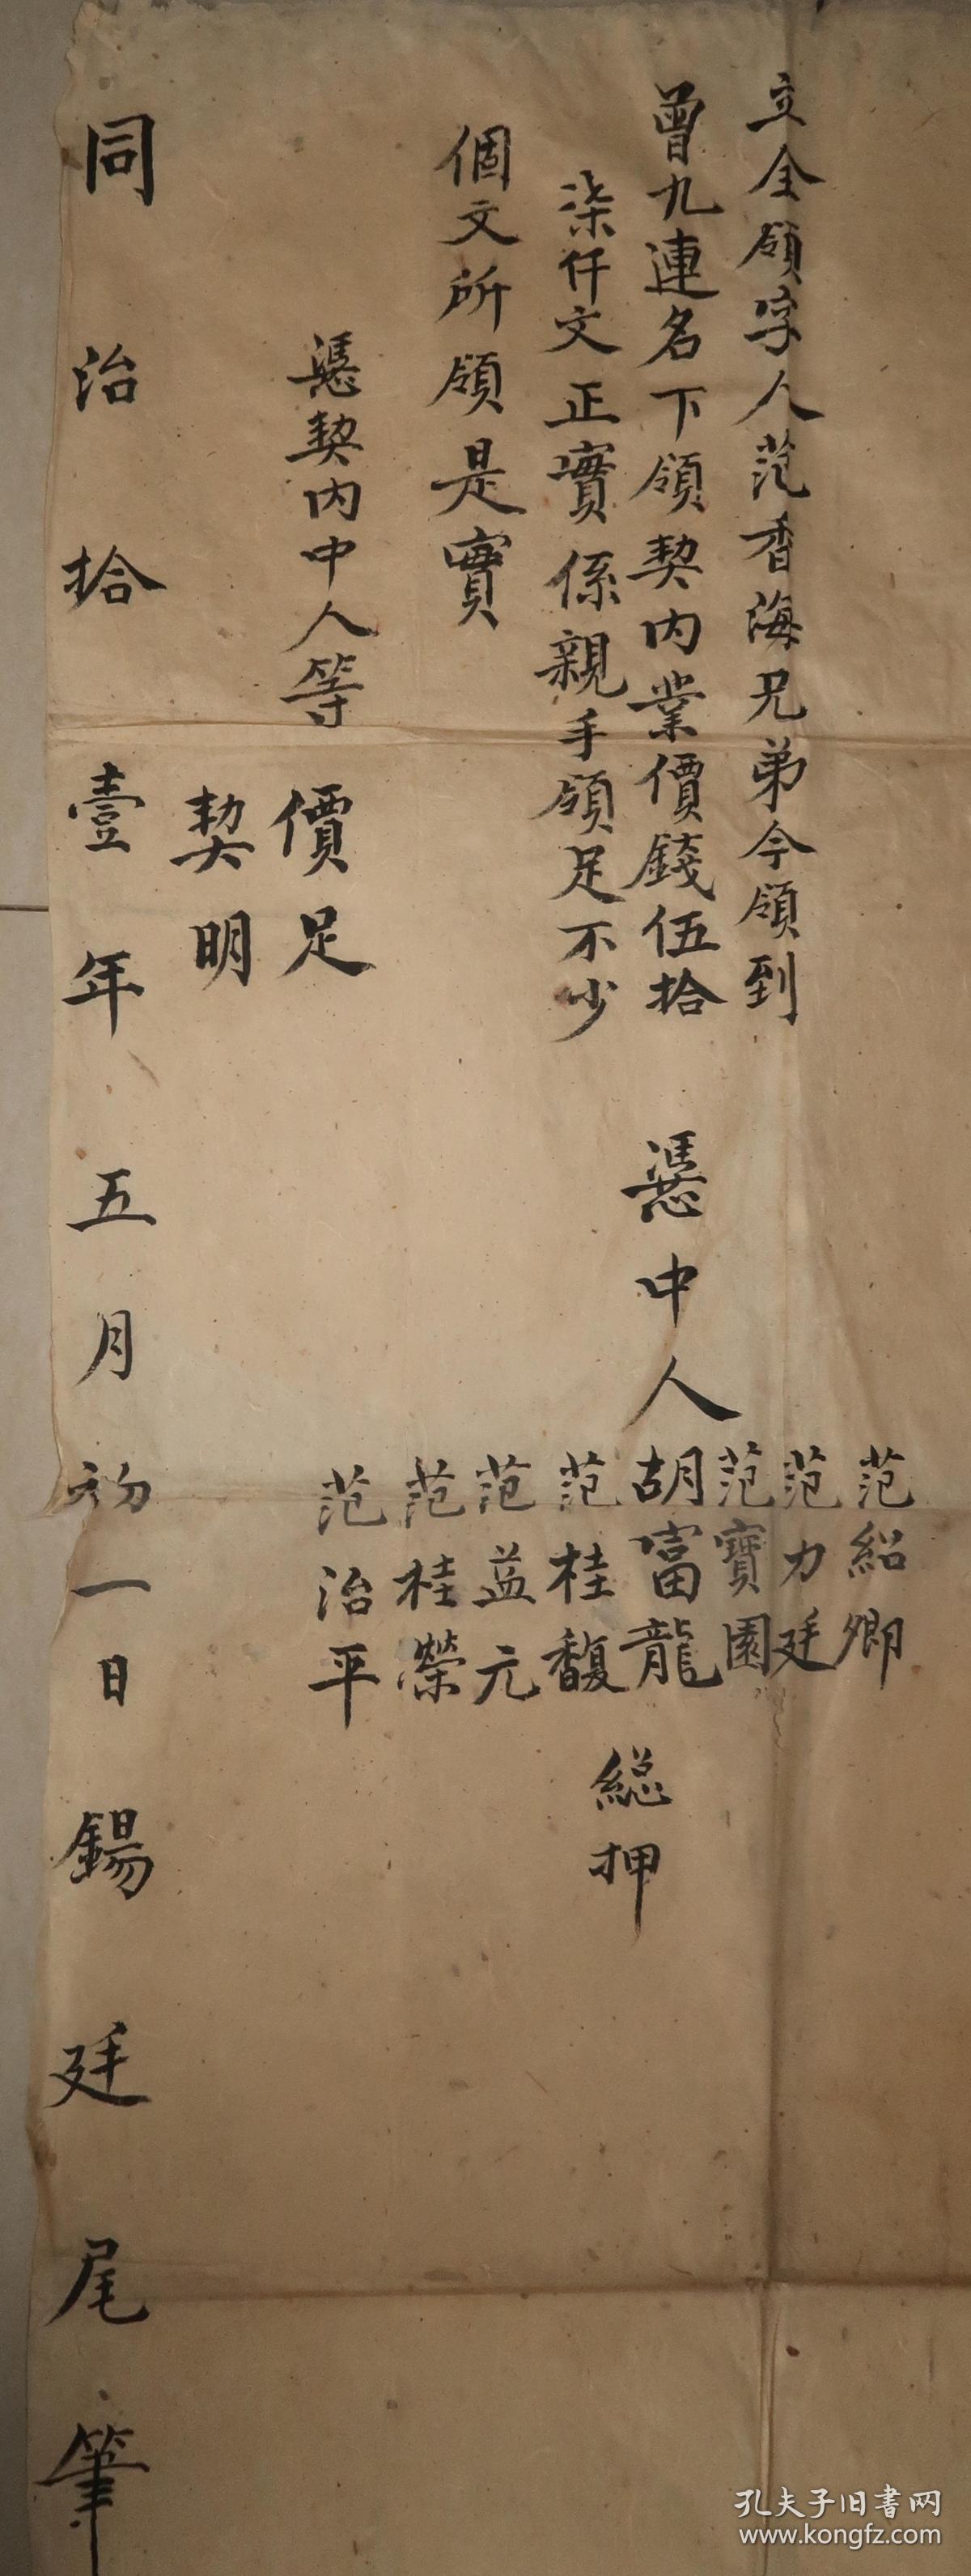 立全領字人范香海兄弟今領到
曾九連名下領契內業價錢伍拾
柒仟文正實係親手領足不少
個文所領是實
憑契內中人等
價足
契明
憑中人
范紹卿
范力廷
范寶園
胡富龍
范桂馥
范益元
范桂榮
范治平
総押
同治拾壹年五月初一日錫廷尾筆
孔夫子旧書网
www.kongfz.com